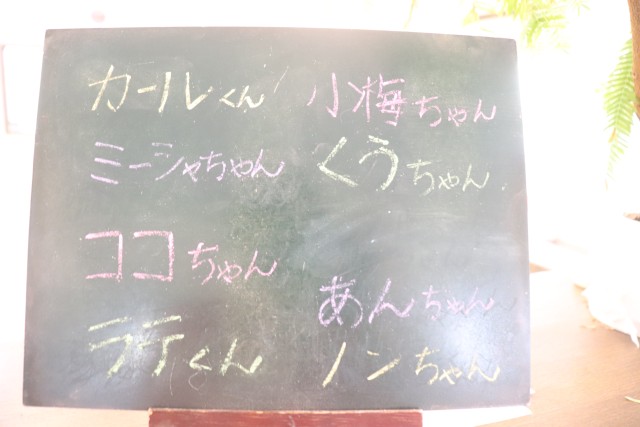 カールくん
小梅ちゃん
ミーシャちゃん
くうちゃん
ココちゃん
あんちゃん
ラテくん
ノンちゃん